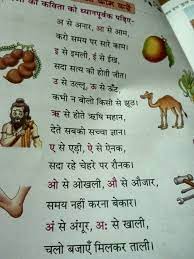 की कविता को ध्यानपूर्वक पढ़िए-
अ से अनार, आ से आम,
करो समय पर सारे काम।
इ से इमली, ई से ईख,
सदा सत्य की होती जीत।
उ से उल्लू, ऊ से ऊँट
कभी न बोलो किसी से झूठ।
ऋ से होते ऋषि महान,
देते सबको सच्चा ज्ञान।
ए से एड़ी, ऐ से ऐनक,
सदा रहे चेहरे पर रौनक।
ओ से ओखली, औ से औजार,
समय नहीं करना बेकार।
अं से अंगूर, अः से खाली,
चलो बजाएँ मिलकर ताली।